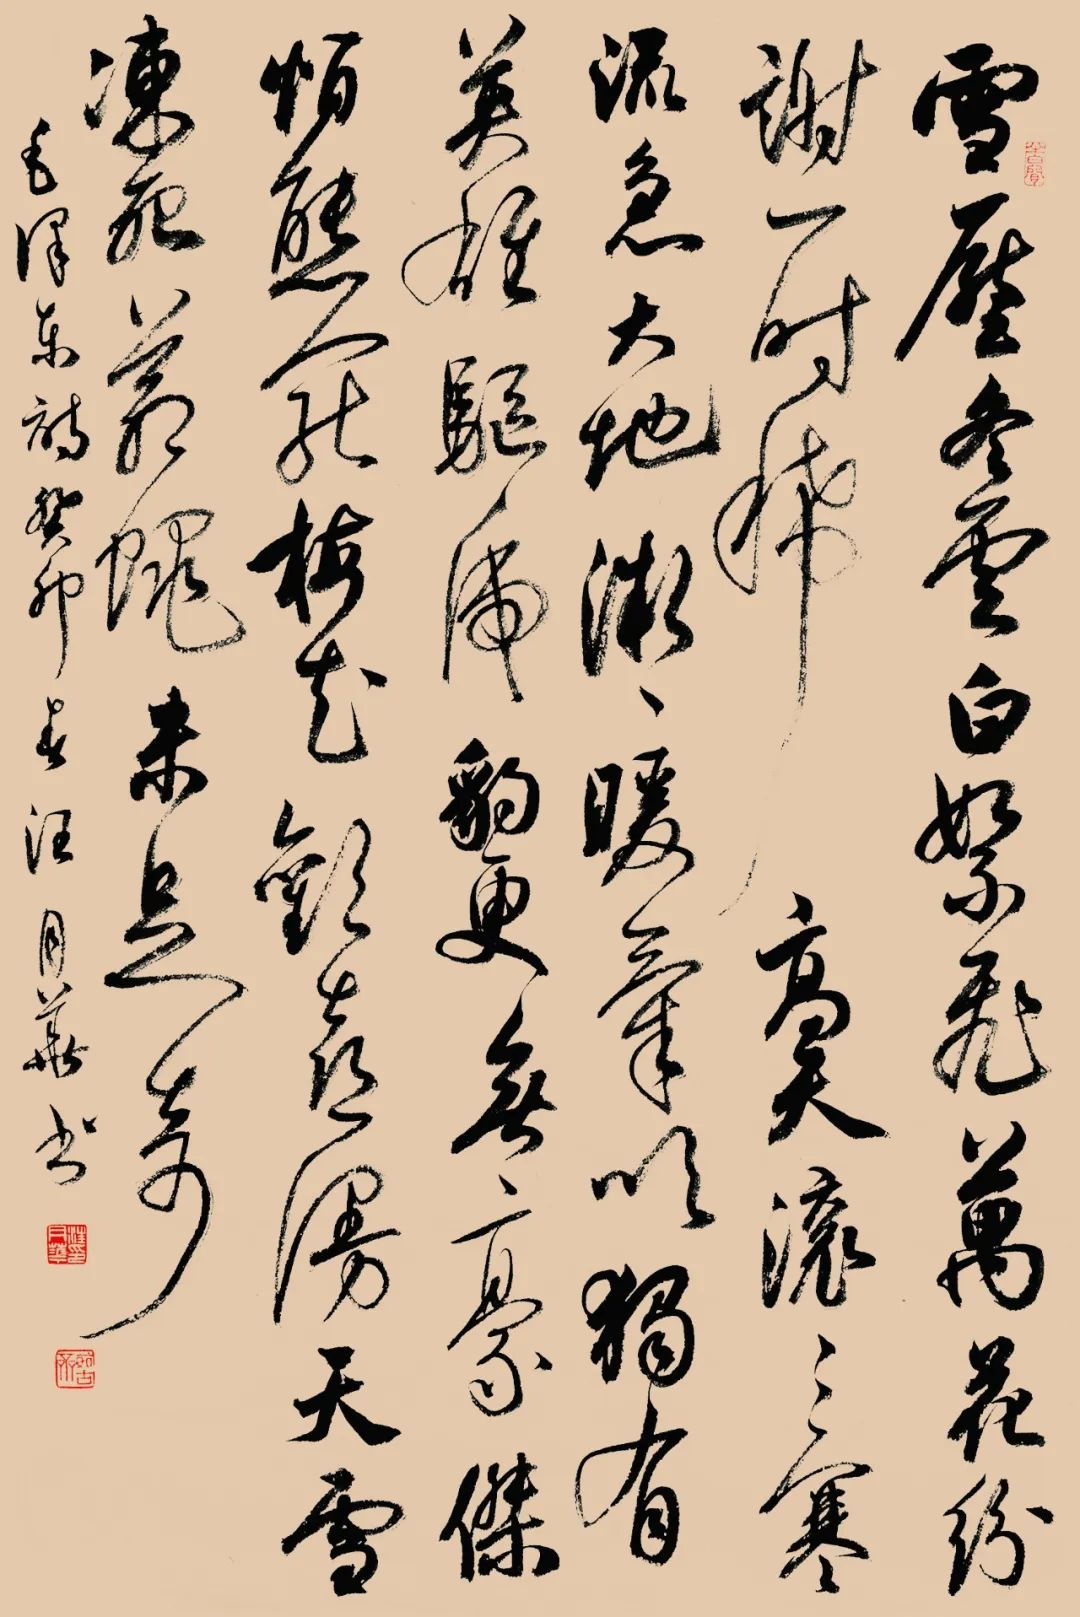 雪壓冬雲白絮飛萬花紛
謝一時稀高天滾〻寒
流急大地微〻暖氣吹獨有
英雄驅虎豹更無豪傑
怕熊羆梅花歡喜漫天雪
凍死蒼蠅未足奇
毛澤东詩癸卯春汪月華书